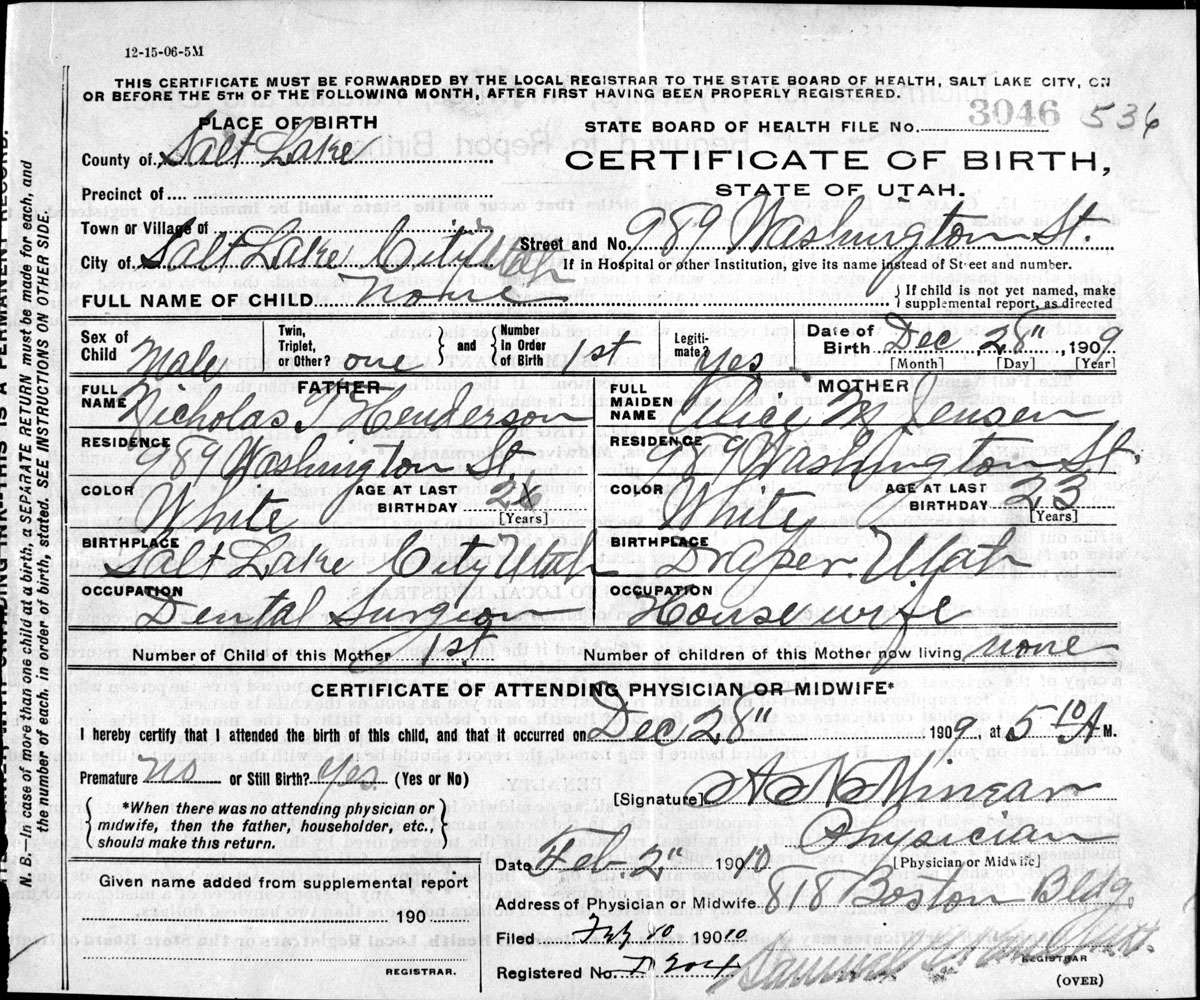 12-15-06-5M
THIS CERTIFICATE MUST BE FORWARDED BY THE LOCAL REGISTRAR TO THE STATE BOARD OF HEALTH, SALT LAKE CITY, ON
OR BEFORE THE 5TH OF THE FOLLOWING MONTH, AFTER FIRST HAVING BEEN PROPERLY REGISTERED.
PLACE OF BIRTH
STATE BOARD OF HEALTH FILE No. 3046 536
County of Salt Lake
CERTIFICATE OF BIRTH,
STATE OF UTAH.
Precinct of
Town or Village of
Street and No. 989 Washington St.
City of Salt Lake City Utah
If in Hospital or other Institution, give its name instead of Street and number.
FULL NAME OF CHILD none
{ If child is not yet named, make
supplemental report, as directed
Sex of Child Male
Twin, Triplet, or Other? one } and { Number In Order of Birth 1st
Legitimate? Yes
Date of Birth Dec, 28", 1909
[Month] [Day] [Year]
FATHER
FULL NAME Nicholas Henderson
RESIDENCE 989 Washington St
COLOR White AGE AT LAST BIRTHDAY 26 [Years]
BIRTHPLACE Salt Lake City Utah
OCCUPATION Dental Surgeon
MOTHER
FULL MAIDEN NAME Alice M Jensen
RESIDENCE 989 Washington St.
COLOR White AGE AT LAST BIRTHDAY 23 [Years]
BIRTHPLACE Draper. Utah
OCCUPATION Housewife
Number of Child of this Mother 1st.
Number of children of this Mother now living none
CERTIFICATE OF ATTENDING PHYSICIAN OR MIDWIFE*
I hereby certify that I attended the birth of this child, and that it occurred on Dec 28" 1909, at 5 10 A M.
Premature No or Still Birth? Yes. (Yes or No)
{ *When there was no attending physician or
midwife, then the father, householder, etc.,
should make this return. }
[Signature] Minear
Physician
[Physician or Midwife]
Date Feb. 2" 1910
Given name added from supplemental report
190
REGISTRAR.
Address of Physician or Midwife 818 Boston Bldg.
Filed Feb 10 19010
Registered No. 204
REGISTRAR
(OVER)
N. B.—In case of more than one child at a birth, a SEPARATE RETURN must be made for each, and
the number of each, in order of birth, stated. SEE INSTRUCTIONS ON OTHER SIDE.